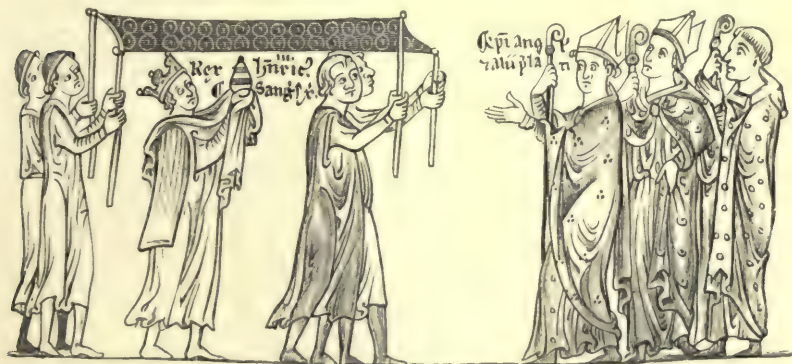 Rex h̅nric᾽ III
Sang᾽ x̅
Ep̅i ang
⁊ alii p̅la ti